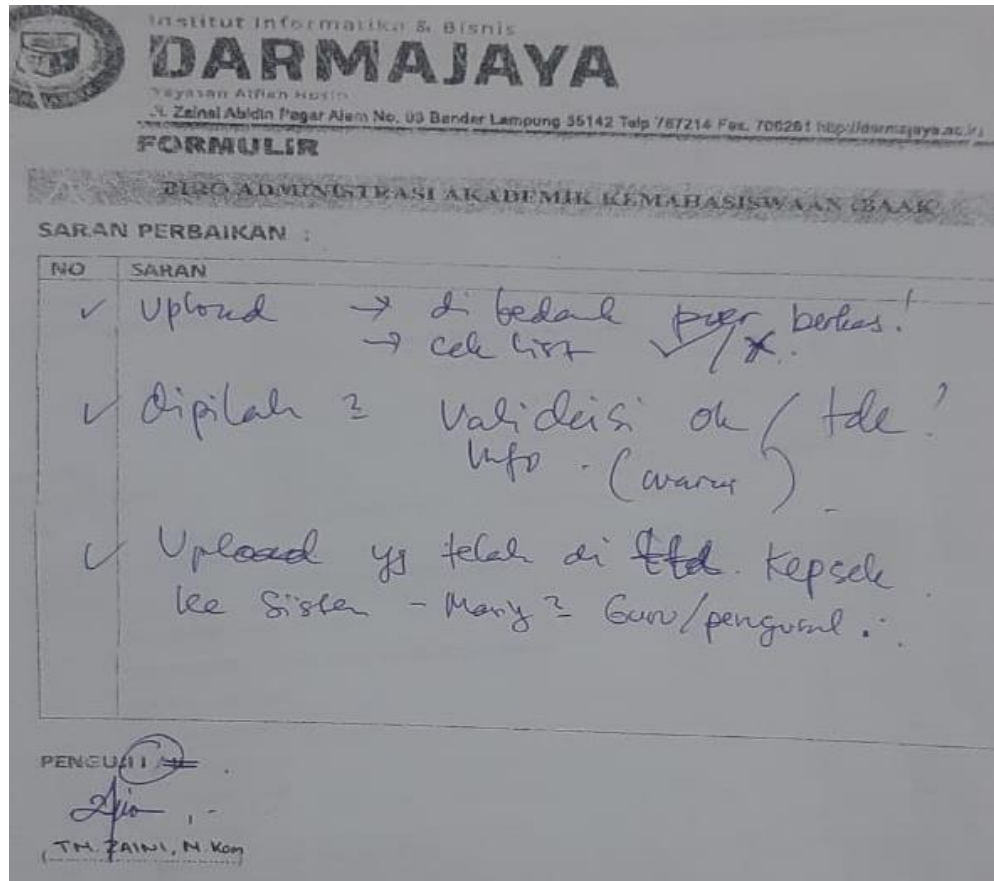 Institut Informatika & Bisnis
DARMAJAYA
Yayasan Alfian Husin
Jl. Zainal Abidin Pagar Alam No. 93 Bandar Lampung 35142 Telp 787214 Fax. 700261 http://darmajaya.ac.id
FORMULIR
BIRO ADMINISTRASI AKADEMIK KEMAHASISWAAN (BAAK)
SARAN PERBAIKAN :
NO SARAN
✓ Upload → di bedank per berkas!
→ cek list ✓/✗.
✓ dipilah 2 Validasi ok / tdk!
Info. (warna)
✓ Upload yg telah di ttd. Kepsek
ke Sistem - Masing 2 Guru/pengusul.
PENGUJI I
TM. ZAINI, M.Kom